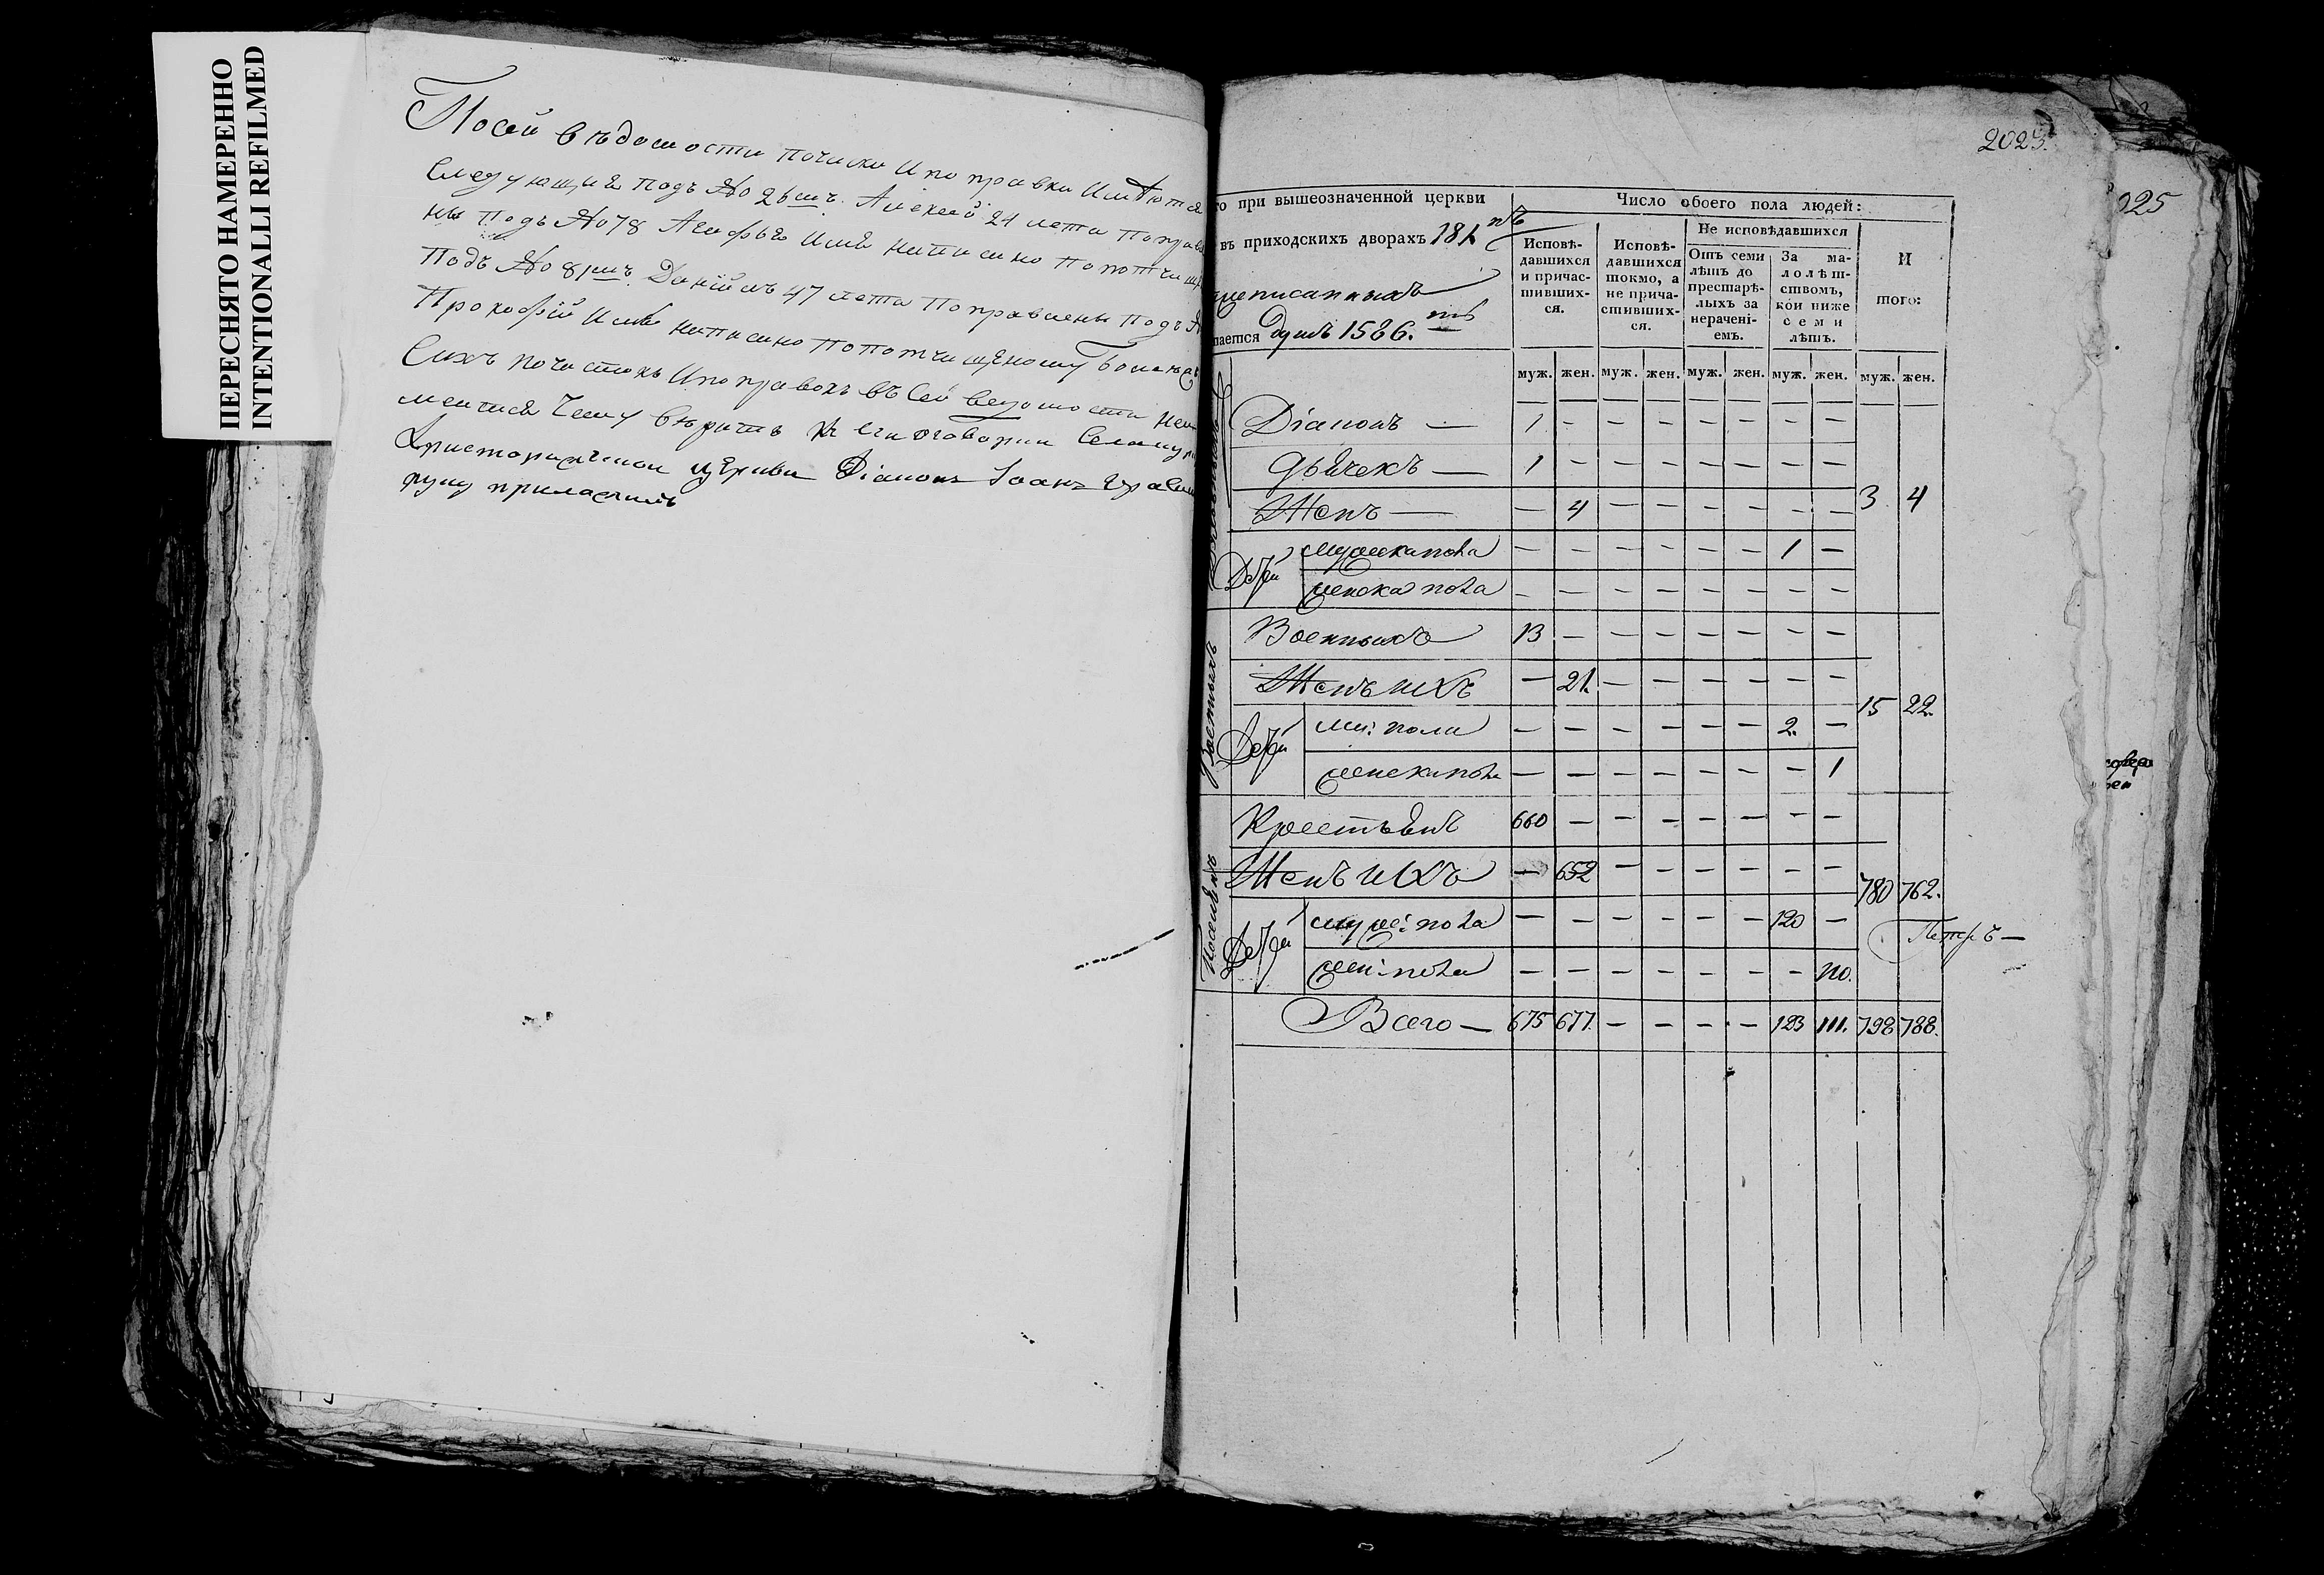 ПЕРЕСНЯТО НАМЕРЕННО
INTENTIONALLI REFILMED
Посей вѣдомости почиски ипоправки имѣются
Следующия подъ №о 26мъ. Алексей 24 лета поправ
ны подъ №о 78 Агафья имя написано попотчищ
Подъ №о 8 Данійлъ 47 лета поправлены подъ
Прокофій имя написано попотчищеному более
Сихъ почистокъ ипоправокъ въ сей ведомости не
меится чему верить
церкви Діаконъ Іоанъ
руку приложилъ
2025.
025
го при вышеозначенной церкви
въ приходскихъ дворахъ 181
шеписанныхъ
пается душъ 1586.
Число обоего пола людей:
Исповѣ-
давшихся
и причас-
тившихся.
Исповѣ-
давшихся
токмо, а
не прича-
стивших-
ся.
Не исповѣдавшихся
Отъ семи
лѣтъ до
престарѣ-
лыхъ за
нерачені-
емъ.
За ма-
лолѣт-
ствомъ,
кои ниже
семи
лѣтъ.
И
того:
муж. жен. муж. жен. муж. жен. муж. жен. муж. жен.
Діаконъ — 1 - - - - - - -
Дьячекъ — 1 - - - - - - -
Женъ — - 4 - - - - - - 3 4
Детей мужеска пола - - - - - - 1 -
женска пола - - - - - - - -
Военныхъ
Военныхъ 13 - - - - - - -
Женъ ихъ - 21. - - - - - -
Детей му: пола - - - - - - 2. - 15 22.
женска пола - - - - - - - 1
Поселянъ
Крестьянъ 660 - - - - - - -
Женъ ихъ - 652 - - - - - - 780 762.
Детей муже: пола - - - - - - 120 -
жен: пола - - - - - - - 110.
Петръ —
Всего — 675 677. - - - - 123 111. 798 788.